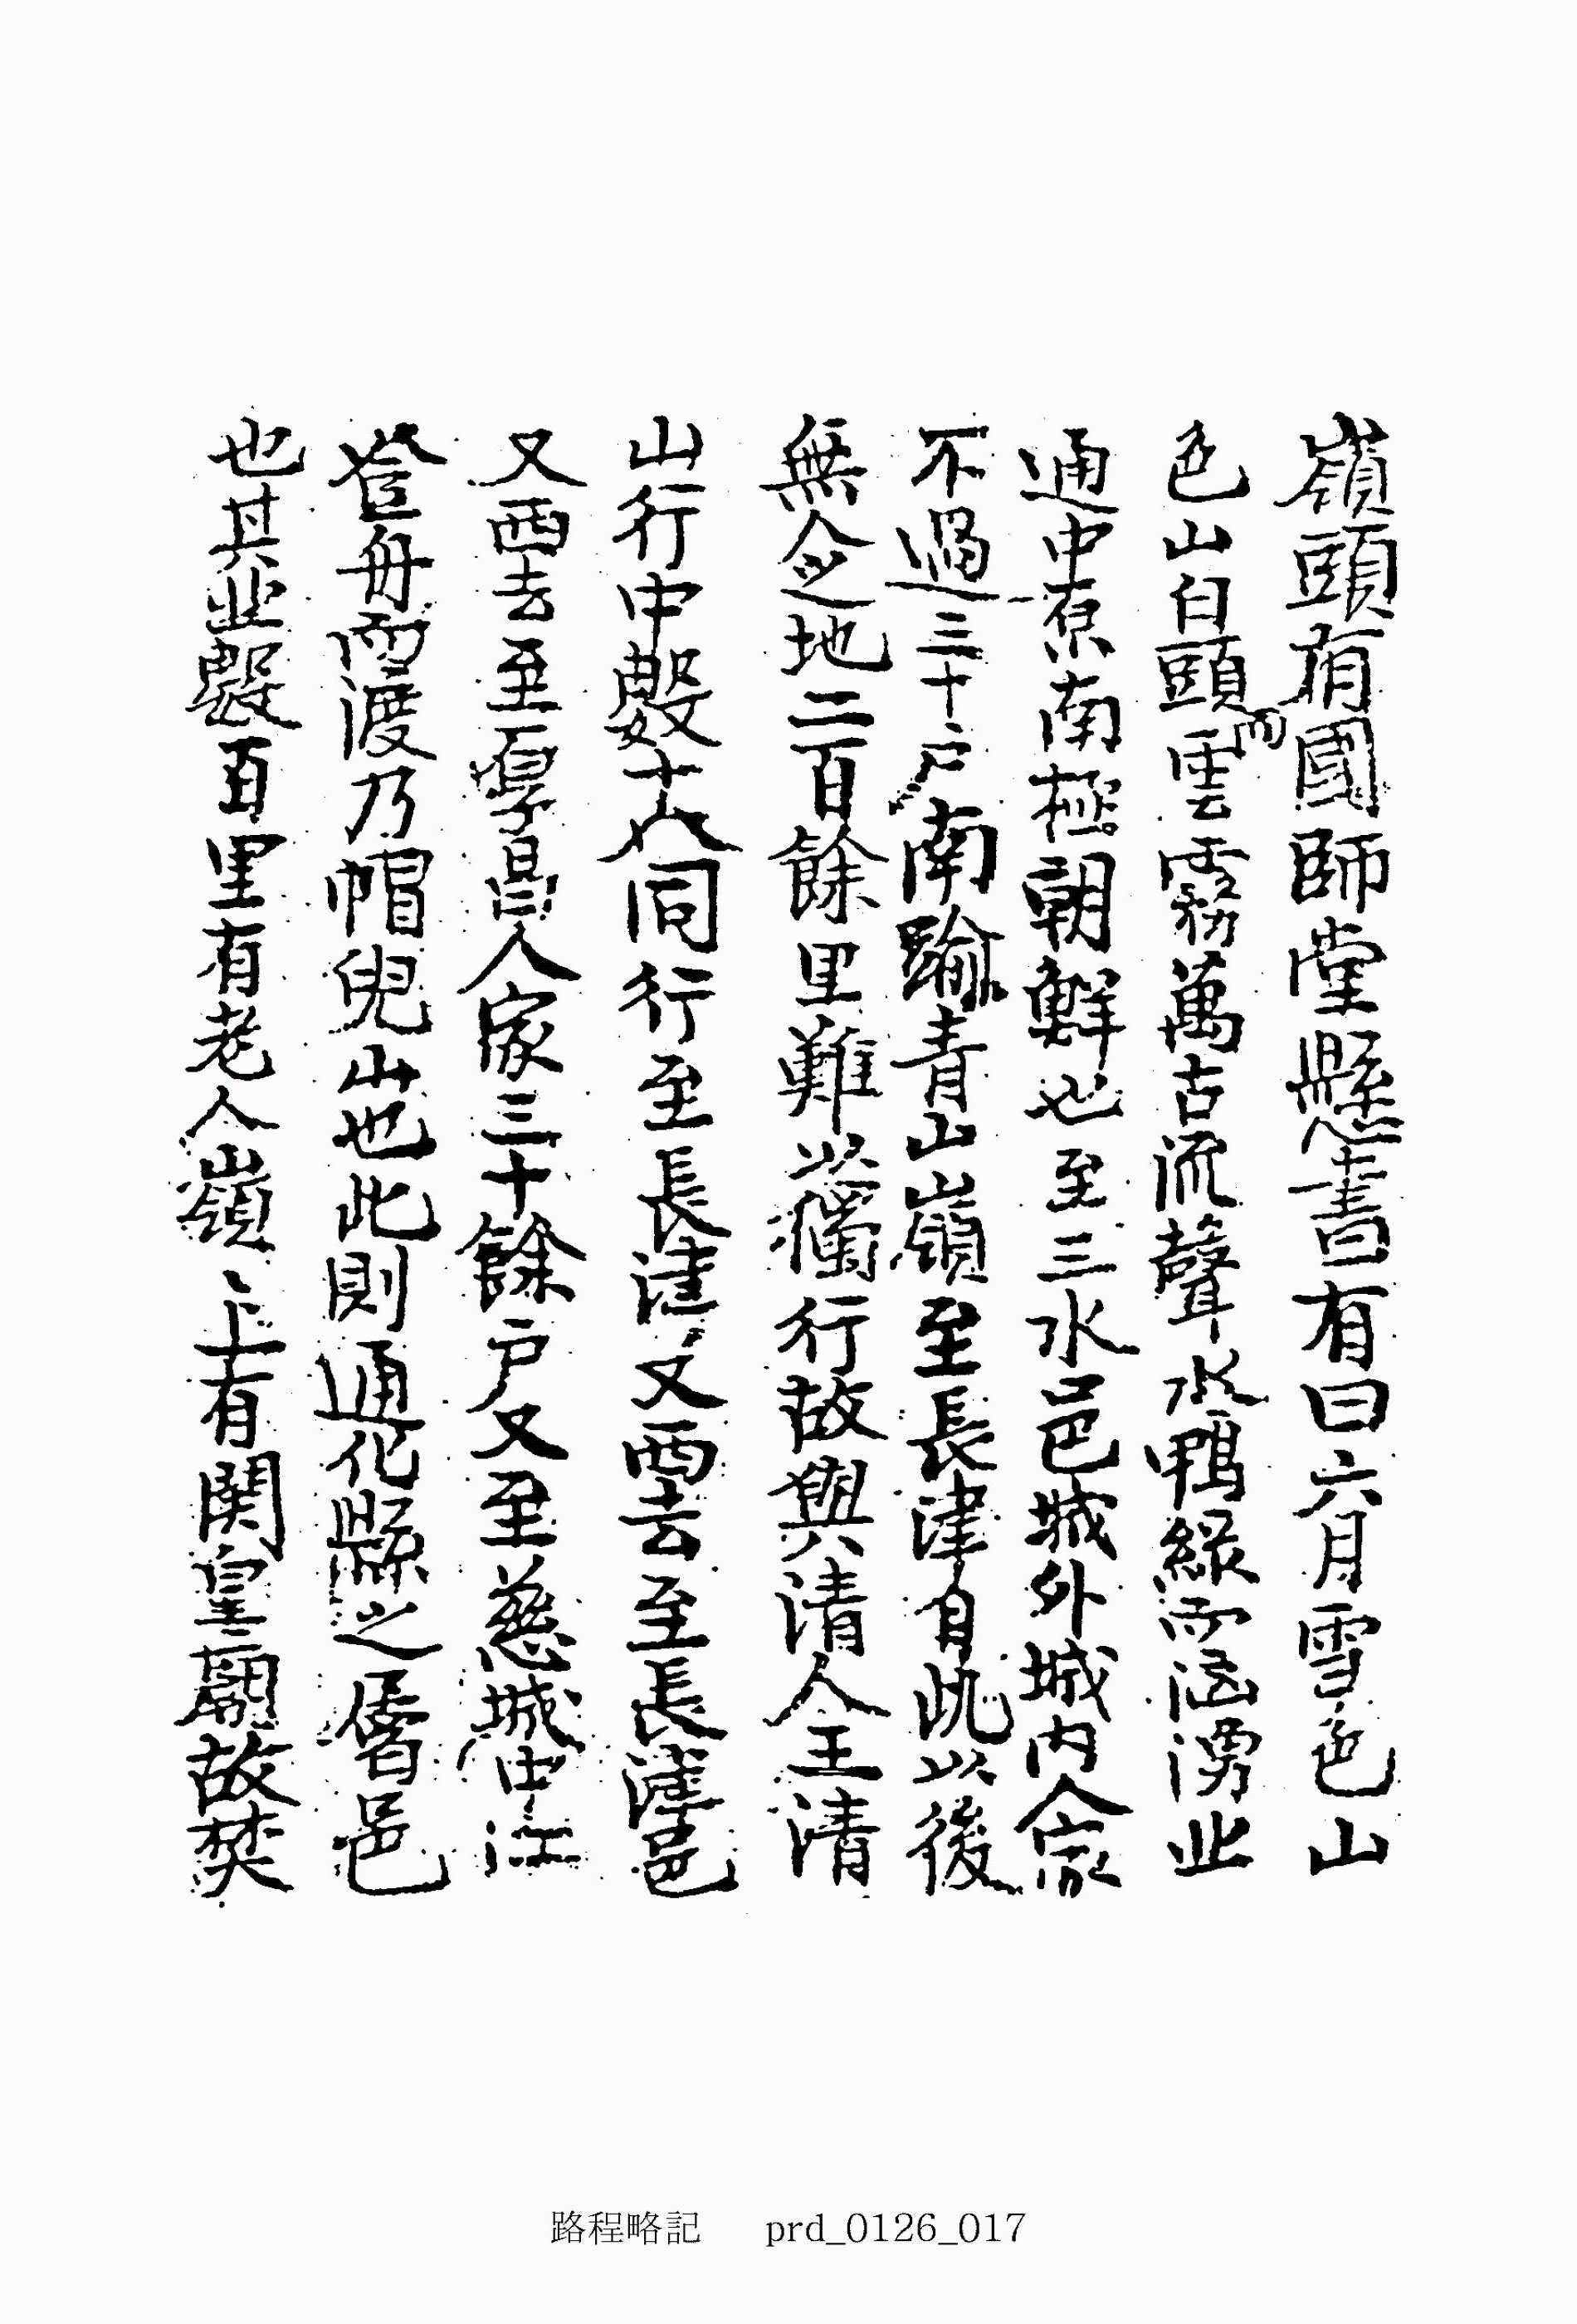 嶺頭有國師堂懸書有曰六月雪色山
色山白頭而雲霧萬古流聲水鴨綠而洶湧北
通中原南極朝鮮也至三水邑城外城内人家
不過三十戶南踰青山嶺至長津自此以後
無人之地二百餘里難以獨行故與清人王清
山行中數十人同行至長津又西去至長津邑
又西去至厚昌人家三十餘戶又至慈城中江
登舟而渡乃帽兒山也此則通化縣之屬邑
也其北數百里有老人嶺〻上有関皇廟故焚